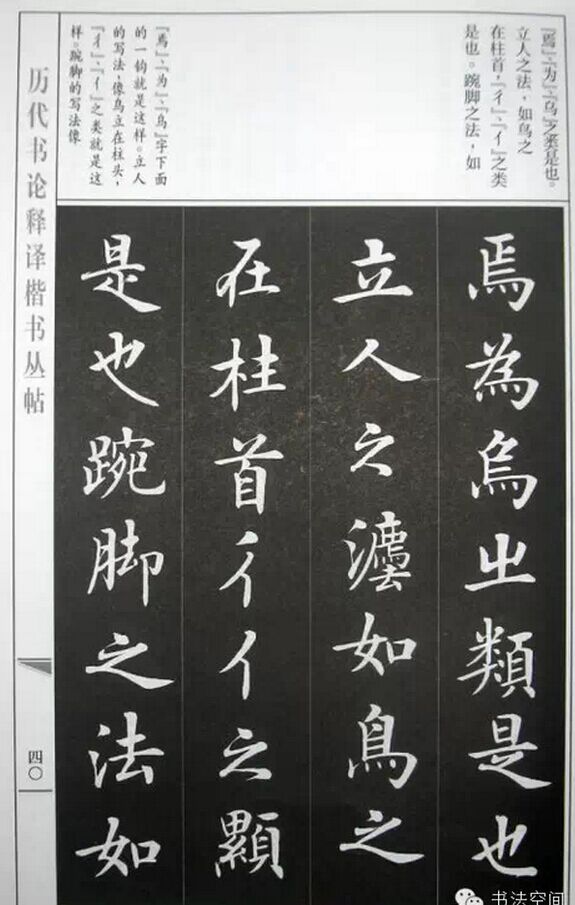 『焉』、『为』、『乌』之类是也。
立人之法，如鸟之
在柱首，『彳』、『亻』之类
是也。踠脚之法，如
『焉』、『为』、『乌』字下面
的一钩就是这样。立人
的写法，像鸟立在柱头，
『彳』、『亻』之类就是这
样。踠脚的写法像
焉為烏㞢類是也
立人之灋如鳥之
在柱首彳亻之類
是也踠脚之法如
历代书论释译楷书丛帖
四〇
书法空间